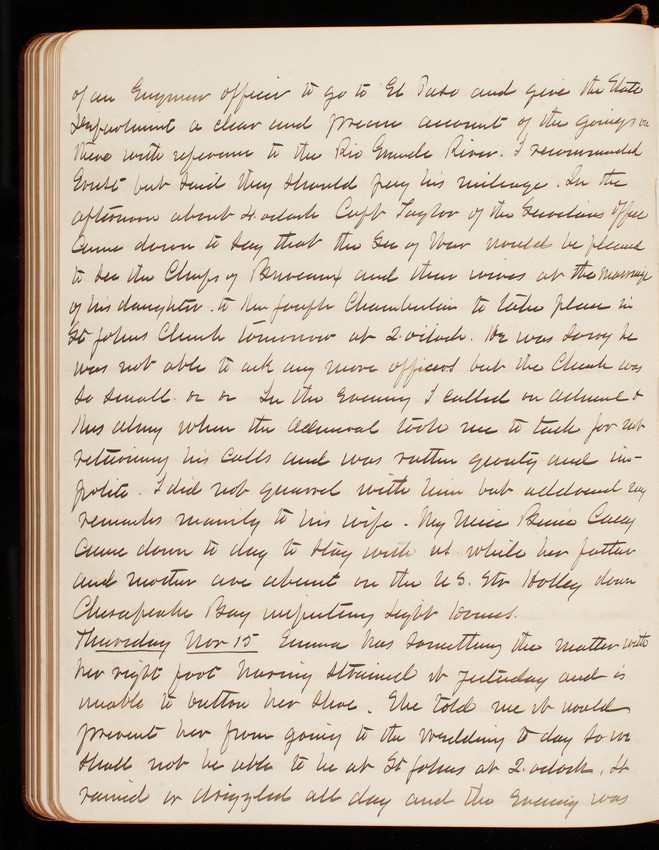 of an Engineer officer to go to El Paso and give the State
Department a clear and precise account of the goings on
there with reference to the Rio Grande River. I recommended
but said they should pay his mileage. In the
afternoon about 4 oclock Capt Taylor of the office
came down to say that the Sec of War would be pleased
to see the Chiefs of Bureaux and their wives at the marriage
of his daughter to Chamberlin to take place in
St Johns Church tomorrow at 2 oclock. He was sorry he
was not able to ask any more officers but the Church was
so small. In the evening I called on &
Mrs when the Admiral took me to task for not
returning his calls and was rather grouty and im-
polite. I did not quarrel with him but addressed my
remarks mainly to his wife. My Niece Casey
came down to day to stay with us while her father
and mother are absent on the U.S. Str Holley down
Chesapeake Bay inspecting Light Houses.
Thursday Nov 15 Emma has something the matter with
her right foot having strained it yesterday and is
unable to button her shoe. She told me it would
prevent her from going to the wedding to day so we
shall not be able to be at St Johns at 2 oclock. It
rained or drizzled all day and the evening was